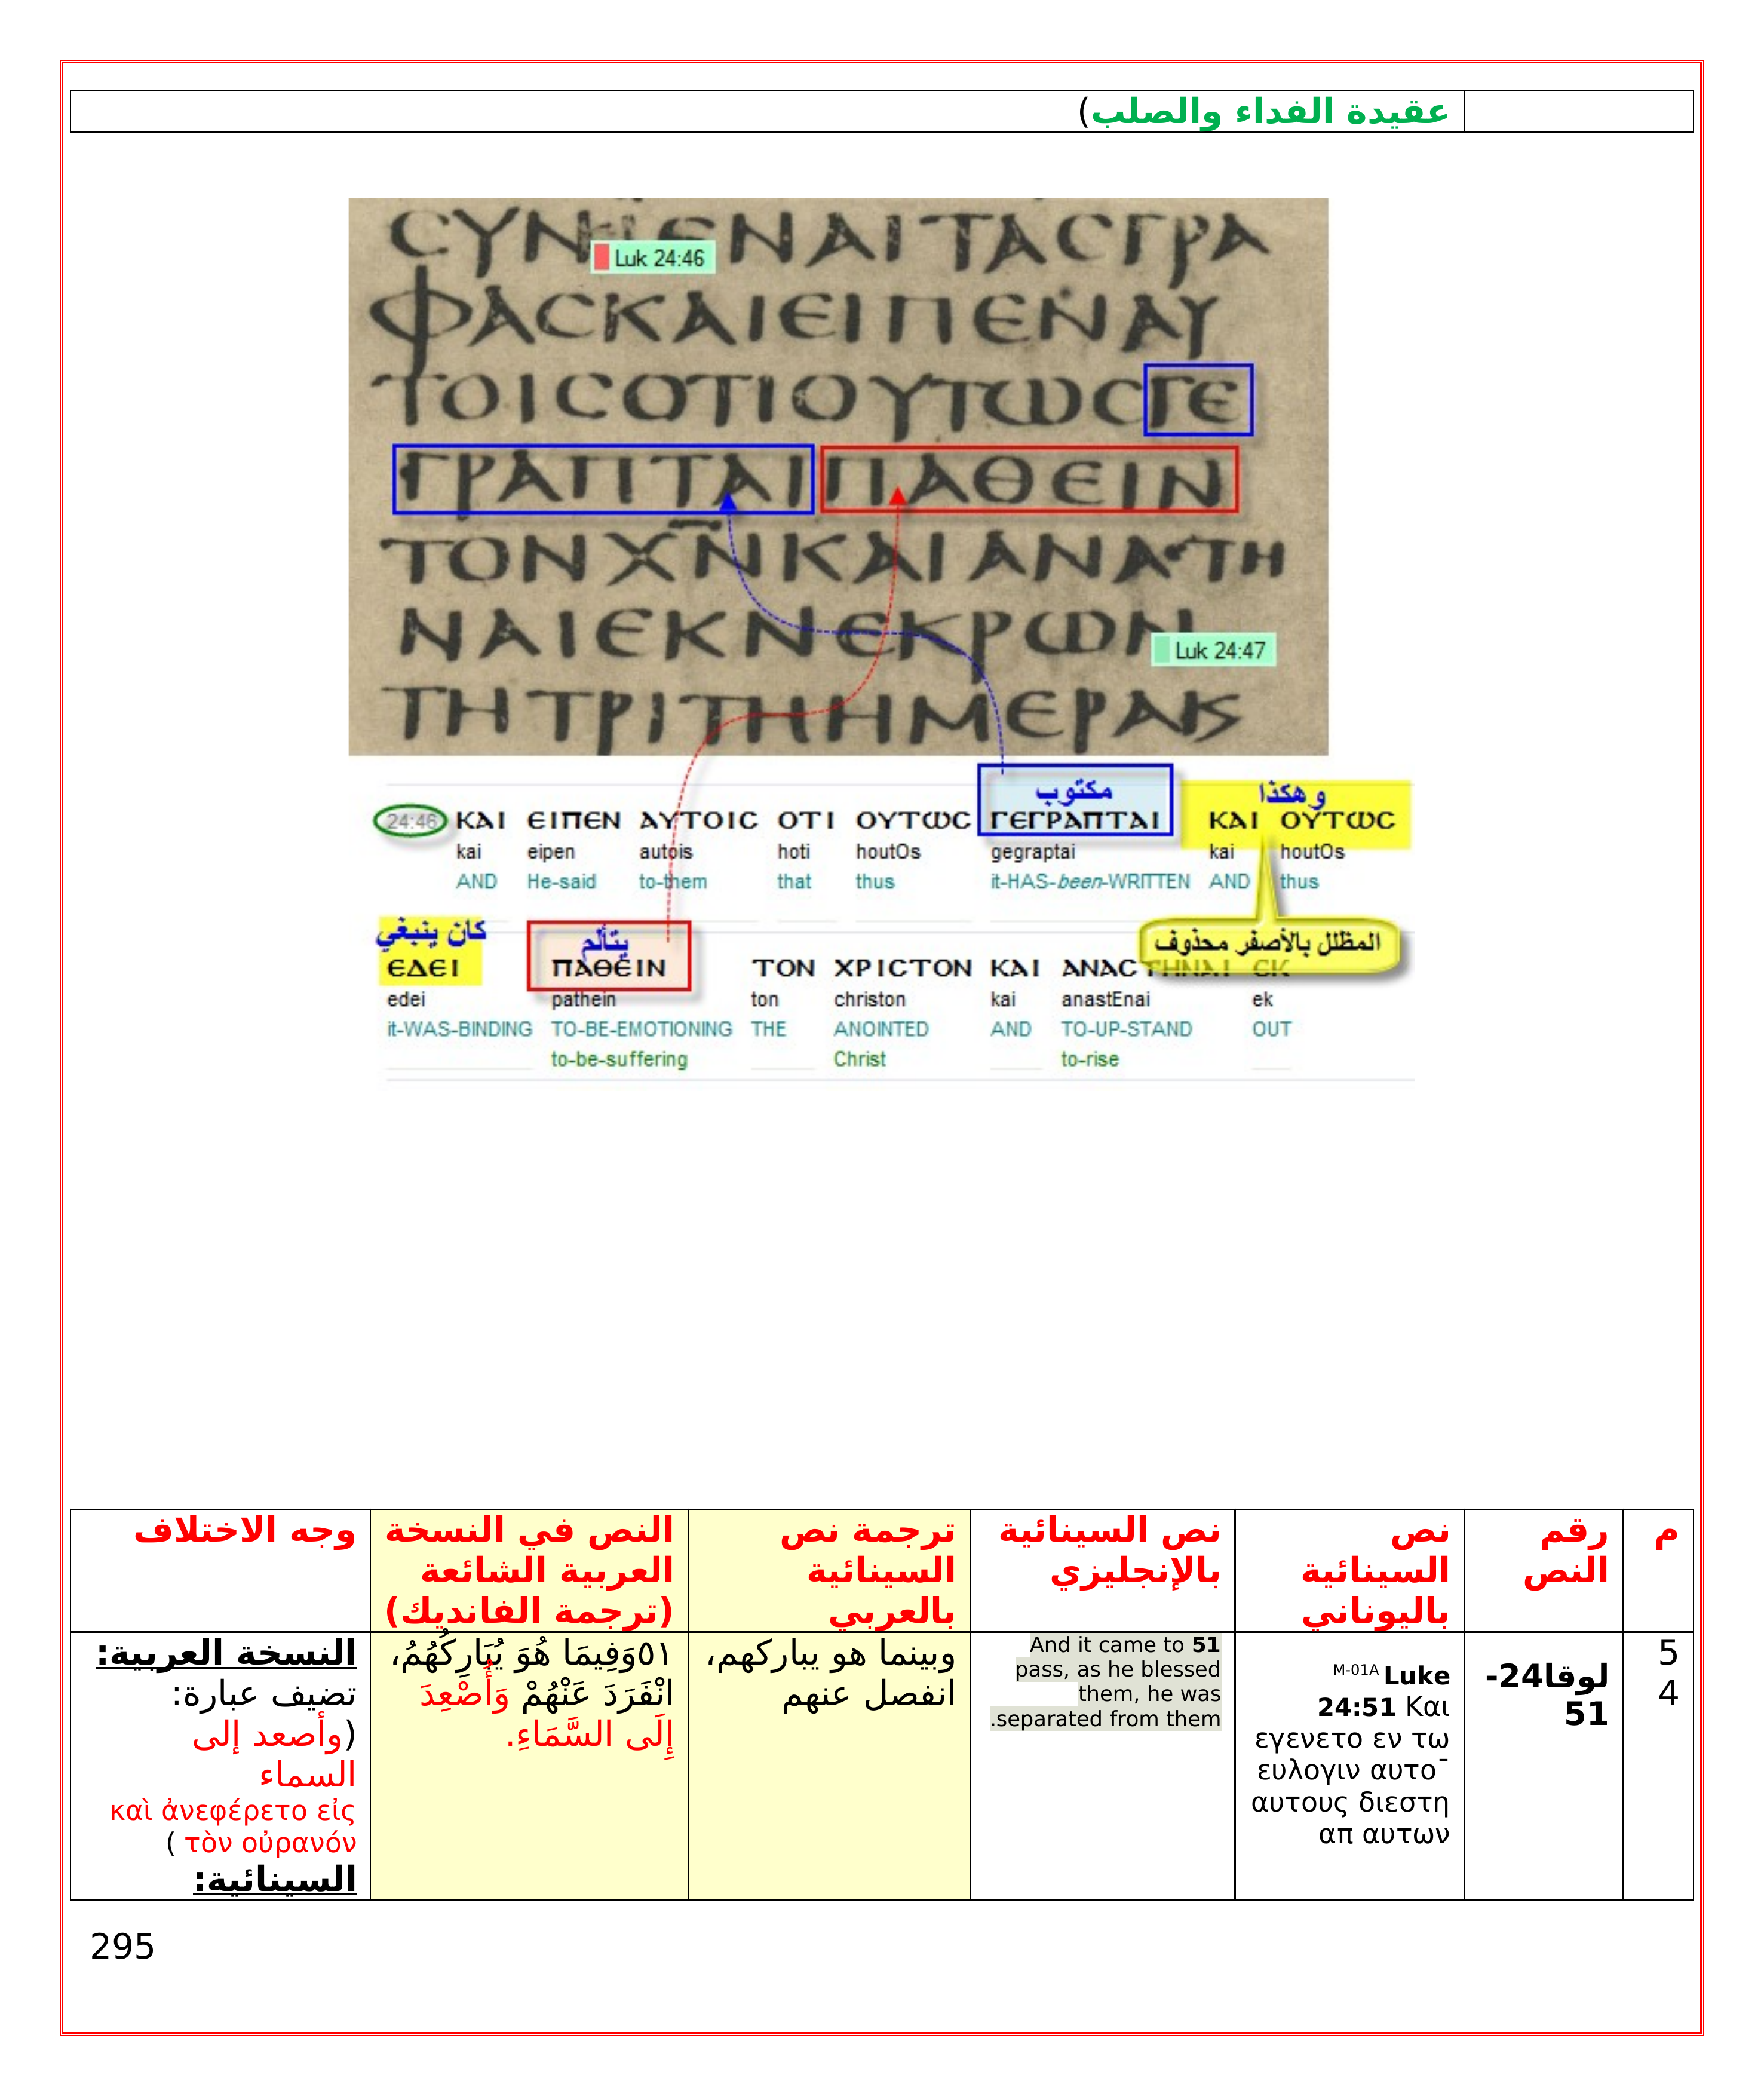 عقيدة الفداء والصلب)
ϹΥΝΙΕΝΑΙΤΑϹΓΡΑ
Luk 24:46
ΦΑϹΚΑΙΕΙΠΕΝΑΥ
ΤΟΙϹΟΤΙΟΥΤΩϹΓΕ
ΓΡΑΠΤΑΙΠΑΘΕΙΝ
ΤΟΝΧ̅Ν̅ΚΑΙΑΝΑϹΤΗ
ΝΑΙΕΚΝΕΚΡΩΝ
Luk 24:47
ΤΗΤΡΙΤΗΗΜΕΡΑΚ
مكتوب وهكذا
24:46 ΚΑΙ ΕΙΠΕΝ ΑΥΤΟΙϹ ΟΤΙ ΟΥΤΩϹ ΓΕΓΡΑΠΤΑΙ ΚΑΙ ΟΥΤΩϹ
kai eipen autois hoti houtOs gegraptai kai houtOs
AND He-said to-them that thus it-HAS-been-WRITTEN AND thus
كان ينبغي يتألم المظلل بالأصفر محذوف
ΕΔΕΙ ΠΑΘΕΙΝ ΤΟΝ ΧΡΙϹΤΟΝ ΚΑΙ ΑΝΑϹΤΗΝΑΙ ΕΚ
edei pathein ton christon kai anastEnai ek
it-WAS-BINDING TO-BE-EMOTIONING THE ANOINTED AND TO-UP-STAND OUT
to-be-suffering Christ to-rise
م
رقم
النص
نص
السينائية
باليوناني
نص السينائية
بالإنجليزي
ترجمة نص
السينائية
بالعربي
النص في النسخة
العربية الشائعة
(ترجمة الفانديك)
وجه الاختلاف
5
4
لوقا24-
51
M-01A Luke
24:51 Και
εγενετο εν τω
ευλογιν αυτο¯
αυτους διεστη
απ αυτων
And it came to 51
pass, as he blessed
them, he was
.separated from them
وبينما هو يباركهم،
انفصل عنهم
٥١وَفِيمَا هُوَ يُبَارِكُهُمُ،
انْفَرَدَ عَنْهُمْ وَأُصْعِدَ
إِلَى السَّمَاءِ.
النسخة العربية:
تضيف عبارة:
(وأصعد إلى
السماء
καὶ ἀνεφέρετο εἰς
τὸν οὐρανόν )
السينائية:
295